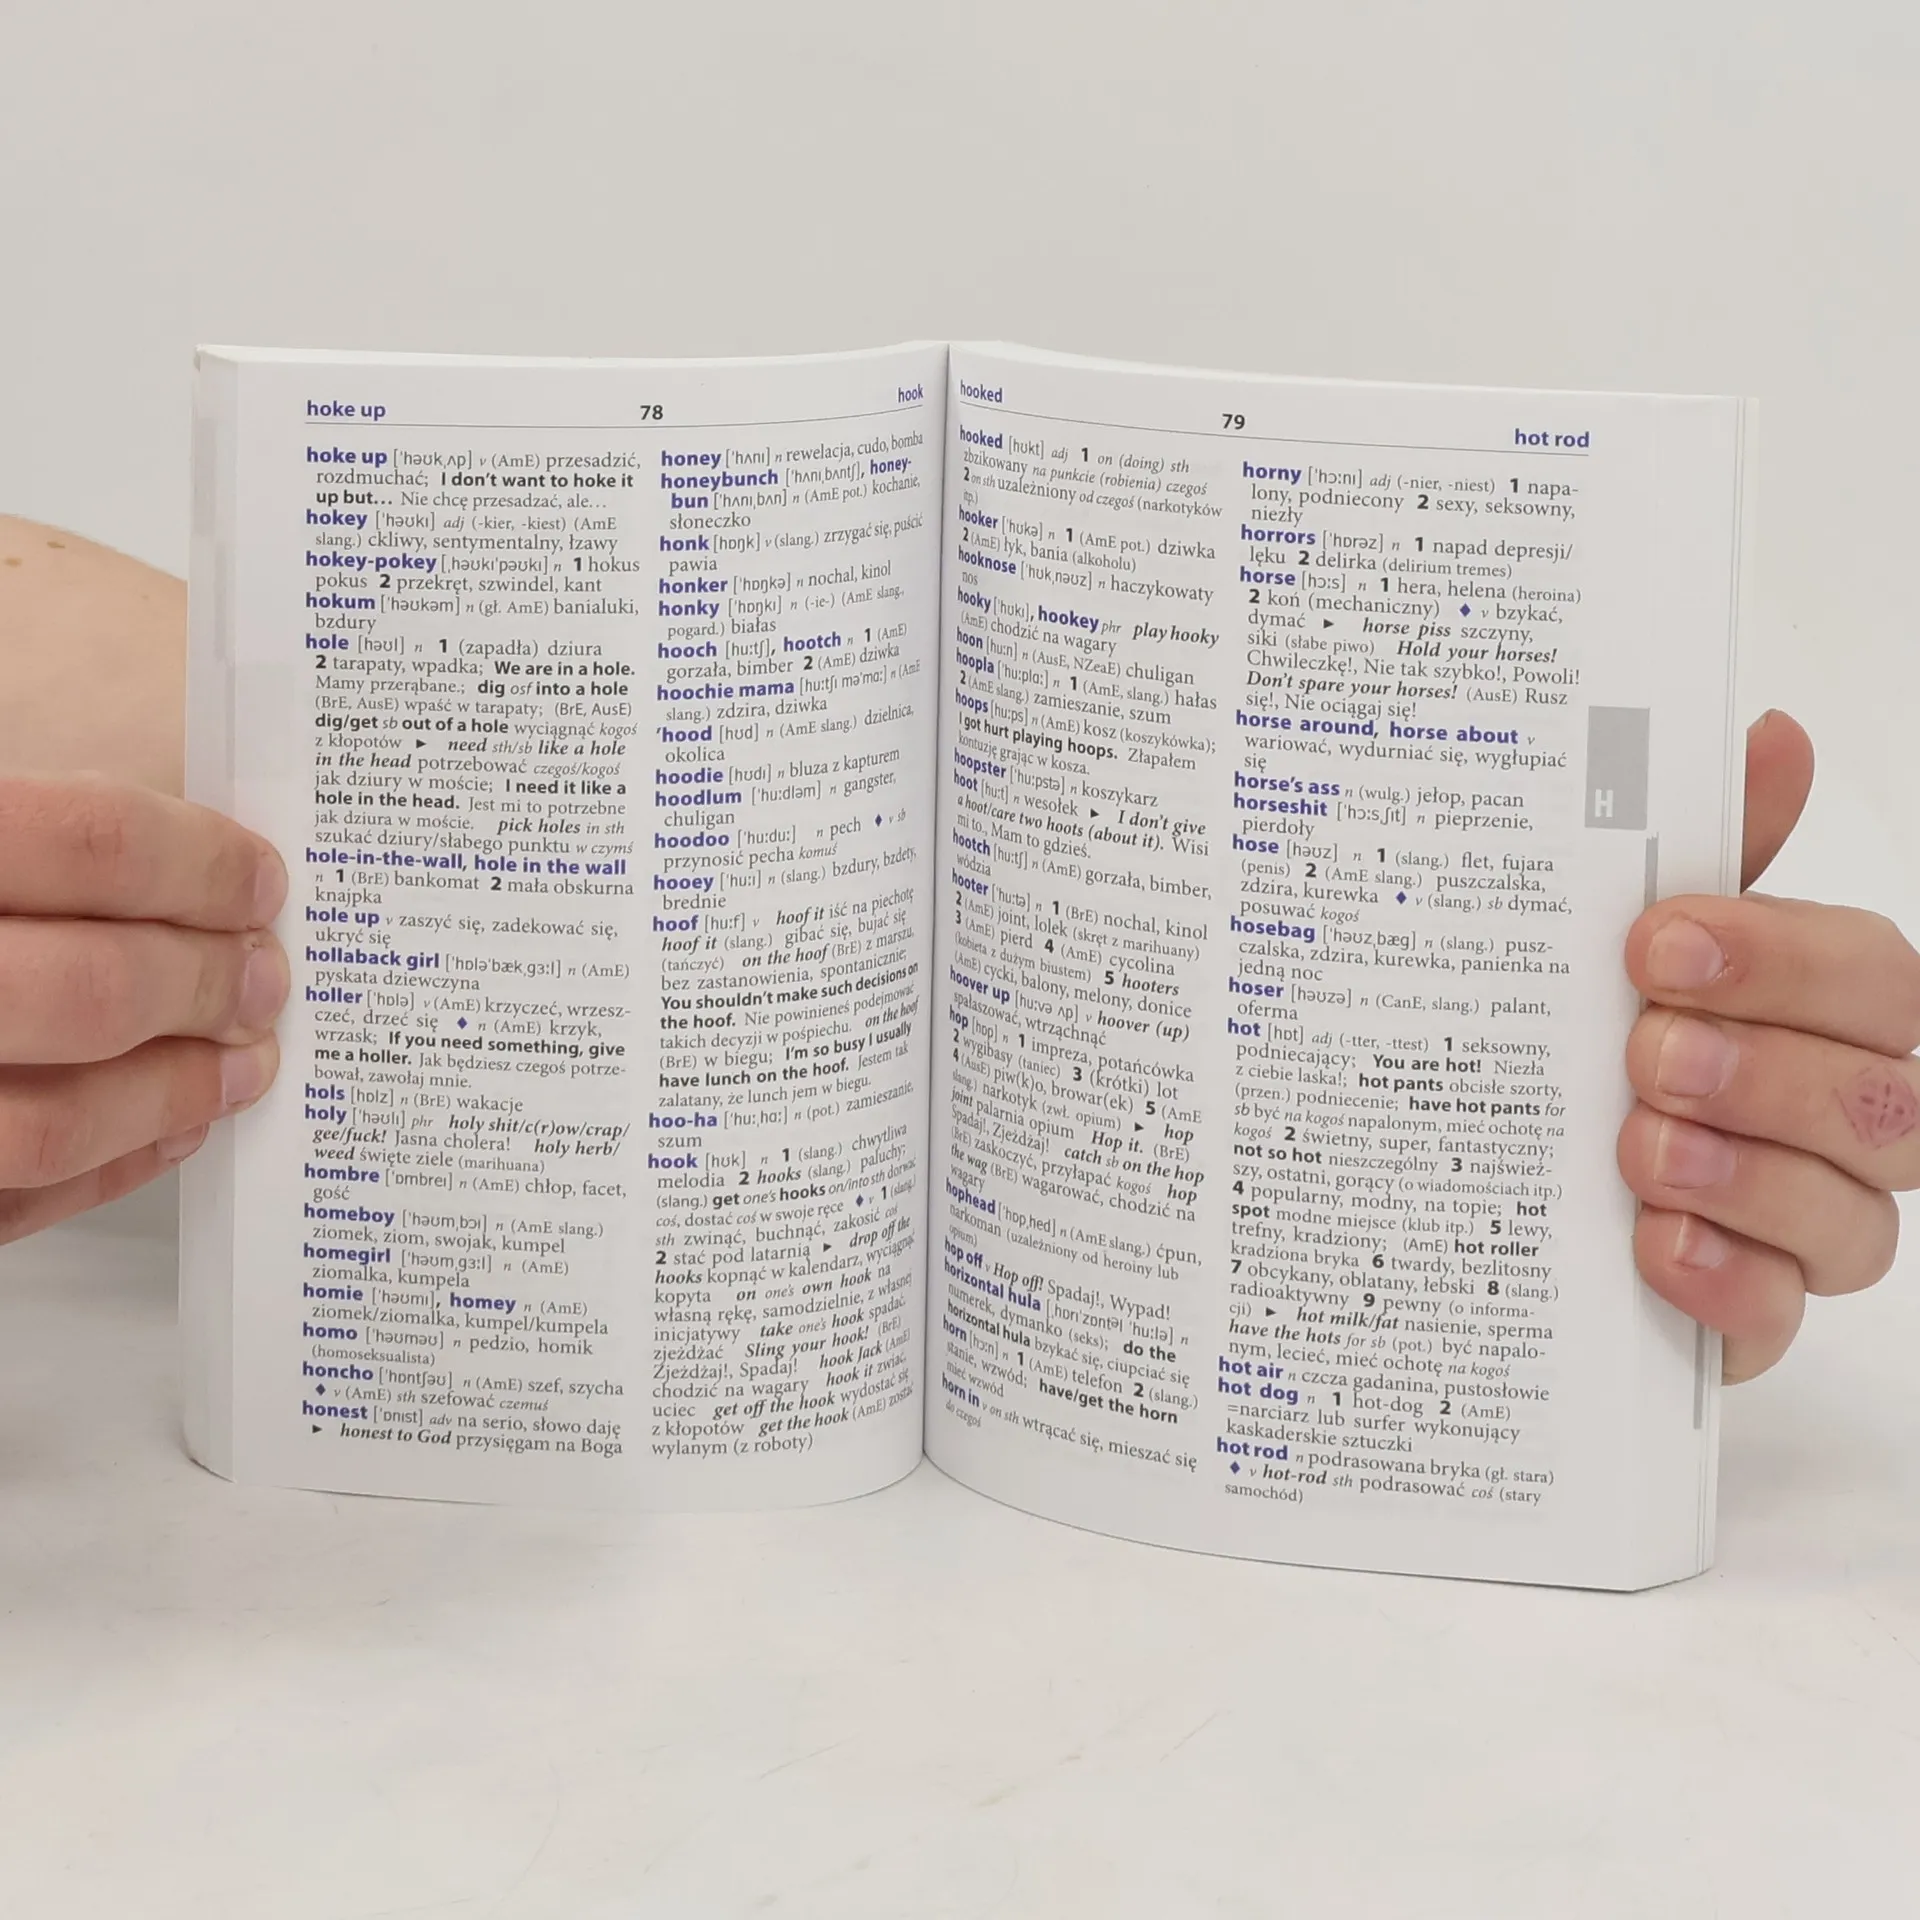 hoke up
78
hook
hoke up ['həʊkˌʌp] v (AmE) przesadzić,
rozdmuchać; I don't want to hoke it
up but... Nie chcę przesadzać, ale...
hokey ['həʊkɪ] adj (-kier, -kiest) (AmE
slang.) ckliwy, sentymentalny, łzawy
hokey-pokey [ˌhəʊkɪ'pəʊkɪ] n 1 hokus
pokus 2 przekręt, szwindel, kant
hokum ['həʊkəm] n (gł. AmE) banialuki,
bzdury
hole [həʊl] n 1 (zapadła) dziura
2 tarapaty, wpadka; We are in a hole.
Mamy przerąbane.; dig osf into a hole
(BrE, AusE) wpaść w tarapaty; (BrE, AusE)
dig/get sb out of a hole wyciągnąć kogoś
z kłopotów ► need sth/sb like a hole
in the head potrzebować czegoś/kogoś
jak dziury w moście; I need it like a
hole in the head. Jest mi to potrzebne
jak dziura w moście. pick holes in sth
szukać dziury/słabego punktu w czymś
hole-in-the-wall, hole in the wall
n 1 (BrE) bankomat 2 mała obskurna
knajpka
hole up v zaszyć się, zadekować się,
ukryć się
hollaback girl ['hɒlə'bækˌgɜːl] n (AmE)
pyskata dziewczyna
holler ['hɒlə] v (AmE) krzyczeć, wrzesz-
czeć, drzeć się ♦ n (AmE) krzyk,
wrzask; If you need something, give
me a holler. Jak będziesz czegoś potrze-
bował, zawołaj mnie.
hols [hɒlz] n (BrE) wakacje
holy ['həʊlɪ] phr holy shit/c(r)ow/crap/
gee/fuck! Jasna cholera! holy herb/
weed święte ziele (marihuana)
hombre ['ɒmbreɪ] n (AmE) chłop, facet,
gość
homeboy ['həʊmˌbɔɪ] n (AmE slang.)
ziomek, ziom, swojak, kumpel
homegirl ['həʊmˌgɜːl] n (AmE)
ziomalka, kumpela
homie ['həʊmɪ], homey n (AmE)
ziomek/ziomalka, kumpel/kumpela
homo ['həʊməʊ] n pedzio, homik
(homoseksualista)
honcho ['hɒntʃəʊ] n (AmE) szef, szycha
♦ v (AmE) sth szefować czemuś
honest ['ɒnɪst] adv na serio, słowo daję
► honest to God przysięgam na Boga
honey ['hʌnɪ] n rewelacja, cudo, bomba
honeybunch ['hʌnɪˌbʌntʃ], honey-
bun ['hʌnɪˌbʌn] n (AmE pot.) kochanie,
słoneczko
honk [hɒŋk] v (slang.) zrzygać się, puścić
pawia
honker ['hɒŋkə] n nochal, kinol
honky ['hɒŋkɪ] n (-ie-) (AmE slang.,
pogard.) białas
hooch [huːtʃ], hootch n 1 (AmE)
gorzała, bimber 2 (AmE) dziwka
hoochie mama [huːtʃɪ mə'mɑː] n (AmE
slang.) zdzira, dziwka
'hood [hʊd] n (AmE slang.) dzielnica,
okolica
hoodie [hʊdɪ] n bluza z kapturem
hoodlum ['huːdləm] n gangster,
chuligan
hoodoo ['huːduː] n pech ♦ v sb
przynosić pecha komuś
hooey ['huːɪ] n (slang.) bzdury, bzdety,
brednie
hoof [huːf] v hoof it iść na piechotę
hoof it (slang.) gibać się, bujać się
(tańczyć) on the hoof (BrE) z marszu,
bez zastanowienia, spontanicznie;
You shouldn't make such decisions on
the hoof. Nie powinieneś podejmować
takich decyzji w pośpiechu. on the hoof
(BrE) w biegu; I'm so busy I usually
have lunch on the hoof. Jestem tak
zalatany, że lunch jem w biegu.
hoo-ha ['huːˌhɑː] n (pot.) zamieszanie,
szum
hook [hʊk] n 1 (slang.) chwytliwa
melodia 2 hooks (slang.) paluchy;
(slang.) get one's hooks on/into sth dorwać
coś, dostać coś w swoje ręce ♦ v 1 (slang.)
sth zwinąć, buchnąć, zakosić coś
2 stać pod latarnią ► drop off the
hooks kopnąć w kalendarz, wyciągnąć
kopyta on one's own hook na
własną rękę, samodzielnie, z własnej
inicjatywy take one's hook spadać,
zjeżdżać Sling your hook! (BrE)
Zjeżdżaj!, Spadaj! hook Jack (AmE)
chodzić na wagary hook it zwiać,
uciec get off the hook wydostać się
z kłopotów get the hook (AmE) zostać
wylanym (z roboty)
hooked
79
hot rod
hooked [hʊkt] adj 1 on (doing) sth
zbzikowany na punkcie (robienia) czegoś
2 on sth uzależniony od czegoś (narkotyków
itp.)
hooker ['hʊkə] n 1 (AmE pot.) dziwka
2 (AmE) łyk, bania (alkoholu)
hooknose ['hʊkˌnəʊz] n haczykowaty
nos
hooky ['hʊkɪ], hookey phr play hooky
(AmE) chodzić na wagary
hoon [huːn] n (AusE, NZeaE) chuligan
hoopla ['huːplɑː] n 1 (AmE, slang.) hałas
2 (AmE slang.) zamieszanie, szum
hoops [huːps] n (AmE) kosz (koszykówka);
I got hurt playing hoops. Złapałem
kontuzję grając w kosza.
hoopster ['huːpstə] n koszykarz
hoot [huːt] n wesołek ► I don't give
a hoot/care two hoots (about it). Wisi
mi to., Mam to gdzieś.
hootch [huːtʃ] n (AmE) gorzała, bimber,
wódzia
hooter ['huːtə] n 1 (BrE) nochal, kinol
2 (AmE) joint, lolek (skręt z marihuany)
3 (AmE) pierd 4 (AmE) cycolina
(kobieta z dużym biustem) 5 hooters
(AmE) cycki, balony, melony, donice
hoover up [huːvə ʌp] v hoover (up)
spałaszować, wtrząchnąć
hop [hɒp] n 1 impreza, potańcówka
2 wygibasy (taniec) 3 (krótki) lot
4 (AusE) piw(k)o, browar(ek) 5 (AmE
slang.) narkotyk (zwł. opium) ► hop
joint palarnia opium Hop it. (BrE)
Spadaj!, Zjeżdżaj! catch sb on the hop
(BrE) zaskoczyć, przyłapać kogoś hop
the wag (BrE) wagarować, chodzić na
wagary
hophead ['hɒpˌhed] n (AmE slang.) ćpun,
narkoman (uzależniony od heroiny lub
opium)
hop off v Hop off! Spadaj!, Wypad!
horizontal hula [ˌhɒrɪ'zɒntəl 'huːlə] n
numerek, dymanko (seks); do the
horizontal hula bzykać się, ciupciać się
horn [hɔːn] n 1 (AmE) telefon 2 (slang.)
stanie, wzwód; have/get the horn
mieć wzwód
horn in v on sth wtrącać się, mieszać się
do czegoś
horny ['hɔːnɪ] adj (-nier, -niest) 1 napa-
lony, podniecony 2 sexy, seksowny,
niezły
horrors ['hɒrəz] n 1 napad depresji/
lęku 2 delirka (delirium tremes)
horse [hɔːs] n 1 hera, helena (heroina)
2 koń (mechaniczny) ♦ v bzykać,
dymać ► horse piss szczyny,
siki (słabe piwo) Hold your horses!
Chwileczkę!, Nie tak szybko!, Powoli!
Don't spare your horses! (AusE) Rusz
się!, Nie ociągaj się!
horse around, horse about v
wariować, wydurniać się, wygłupiać
się
horse's ass n (wulg.) jełop, pacan
horseshit ['hɔːsˌʃɪt] n pieprzenie,
pierdoły
hose [həʊz] n 1 (slang.) flet, fujara
(penis) 2 (AmE slang.) puszczalska,
zdzira, kurewka ♦ v (slang.) sb dymać,
posuwać kogoś
hosebag ['həʊzˌbæg] n (slang.) pusz-
czalska, zdzira, kurewka, panienka na
jedną noc
hoser [həʊzə] n (CanE, slang.) palant,
oferma
hot [hɒt] adj (-tter, -ttest) 1 seksowny,
podniecający; You are hot! Niezła
z ciebie laska!; hot pants obcisłe szorty,
(przen.) podniecenie; have hot pants for
sb być na kogoś napalonym, mieć ochotę na
kogoś 2 świetny, super, fantastyczny;
not so hot nieszczególny 3 najśwież-
szy, ostatni, gorący (o wiadomościach itp.)
4 popularny, modny, na topie; hot
spot modne miejsce (klub itp.) 5 lewy,
trefny, kradziony; (AmE) hot roller
kradziona bryka 6 twardy, bezlitosny
7 obcykany, oblatany, łebski 8 (slang.)
radioaktywny 9 pewny (o informa-
cji) ► hot milk/fat nasienie, sperma
have the hots for sb (pot.) być napalo-
nym, lecieć, mieć ochotę na kogoś
hot air n czcza gadanina, pustosłowie
hot dog n 1 hot-dog 2 (AmE)
=narciarz lub surfer wykonujący
kaskaderskie sztuczki
hot rod n podrasowana bryka (gł. stara)
♦ v hot-rod sth podrasować coś (stary
samochód)
H